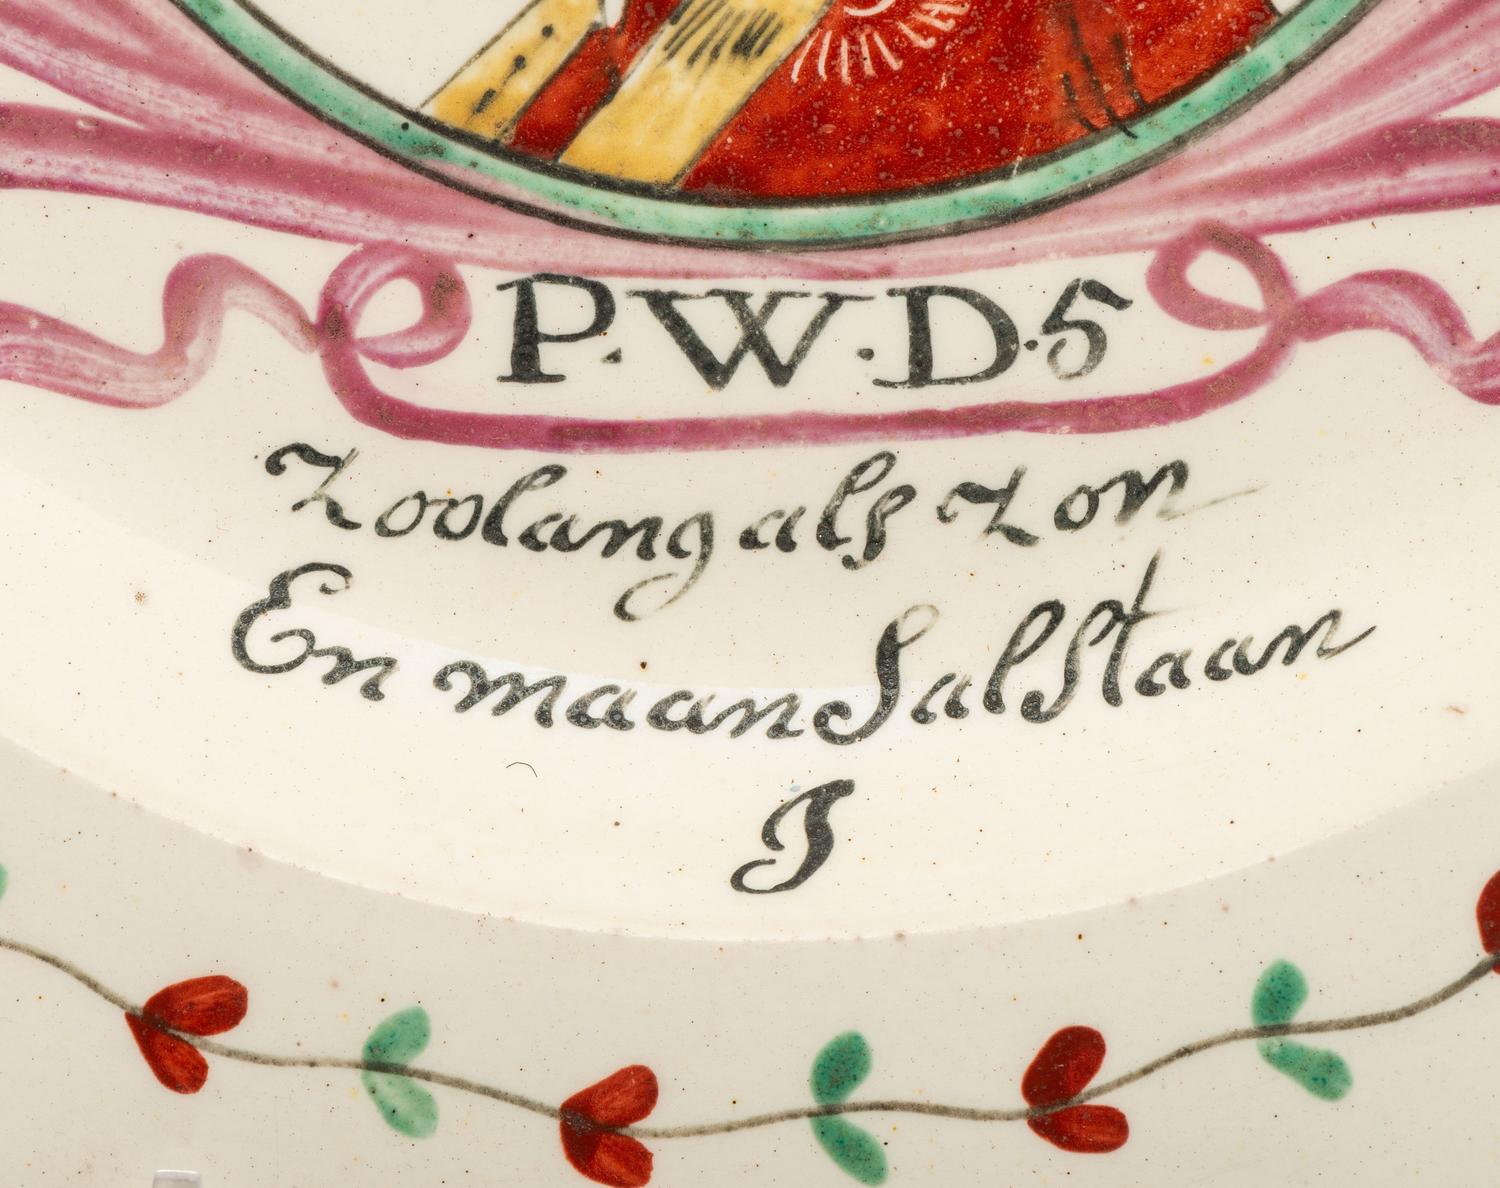 P.W.D.5
Zoolang als Zon
En maan Sal Staan
J